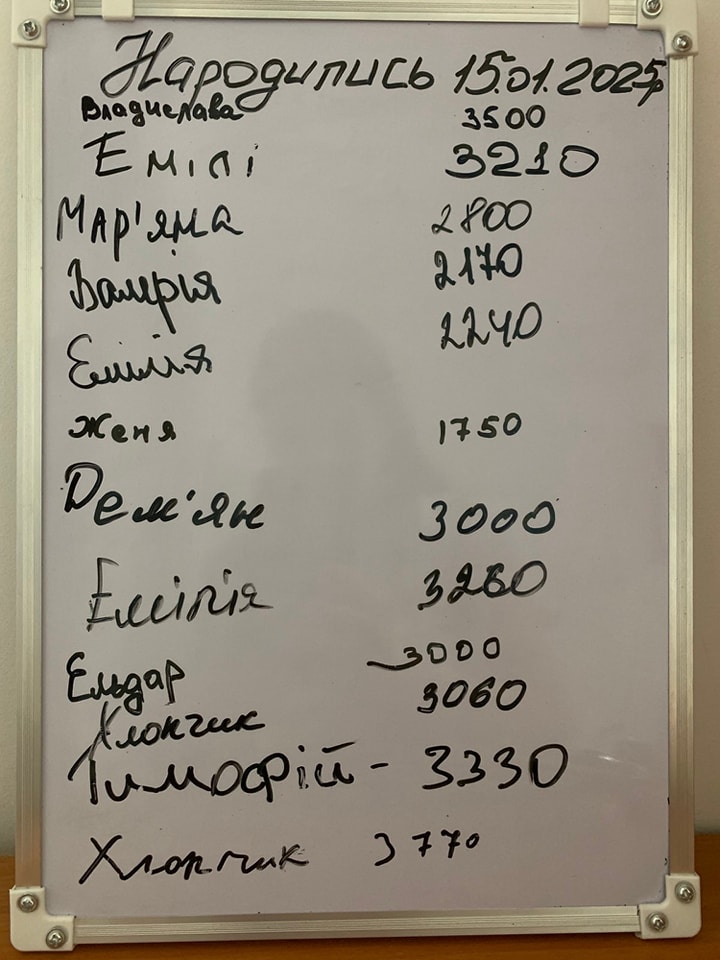 Народились 15.01.2025р
Владислава 3500
Емілі 3210
Мар'яна 2800
Валерія 2170
Емілія 2240
Женя 1750
Дем'ян 3000
Емілія 3260
Ельдар 3000
Хлопчик 3060
Тимофій - 3330
Хлопчик 3770